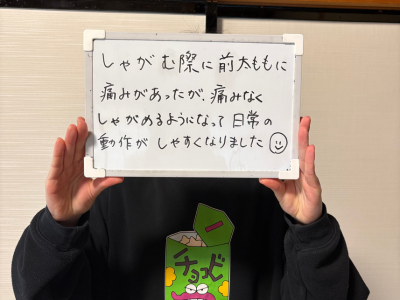 しゃがむ際に前太ももに
痛みがあったが、痛みなく
しゃがめるようになって日常の
動作がしやすくなりました
チョコビ